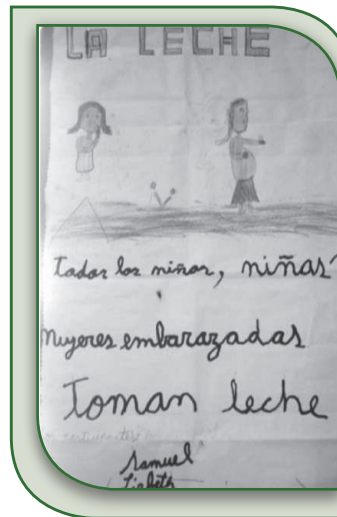 LA LECHE
Todos los niños, niñas
mujeres embarazadas
Toman leche
Samuel
Lisbeth